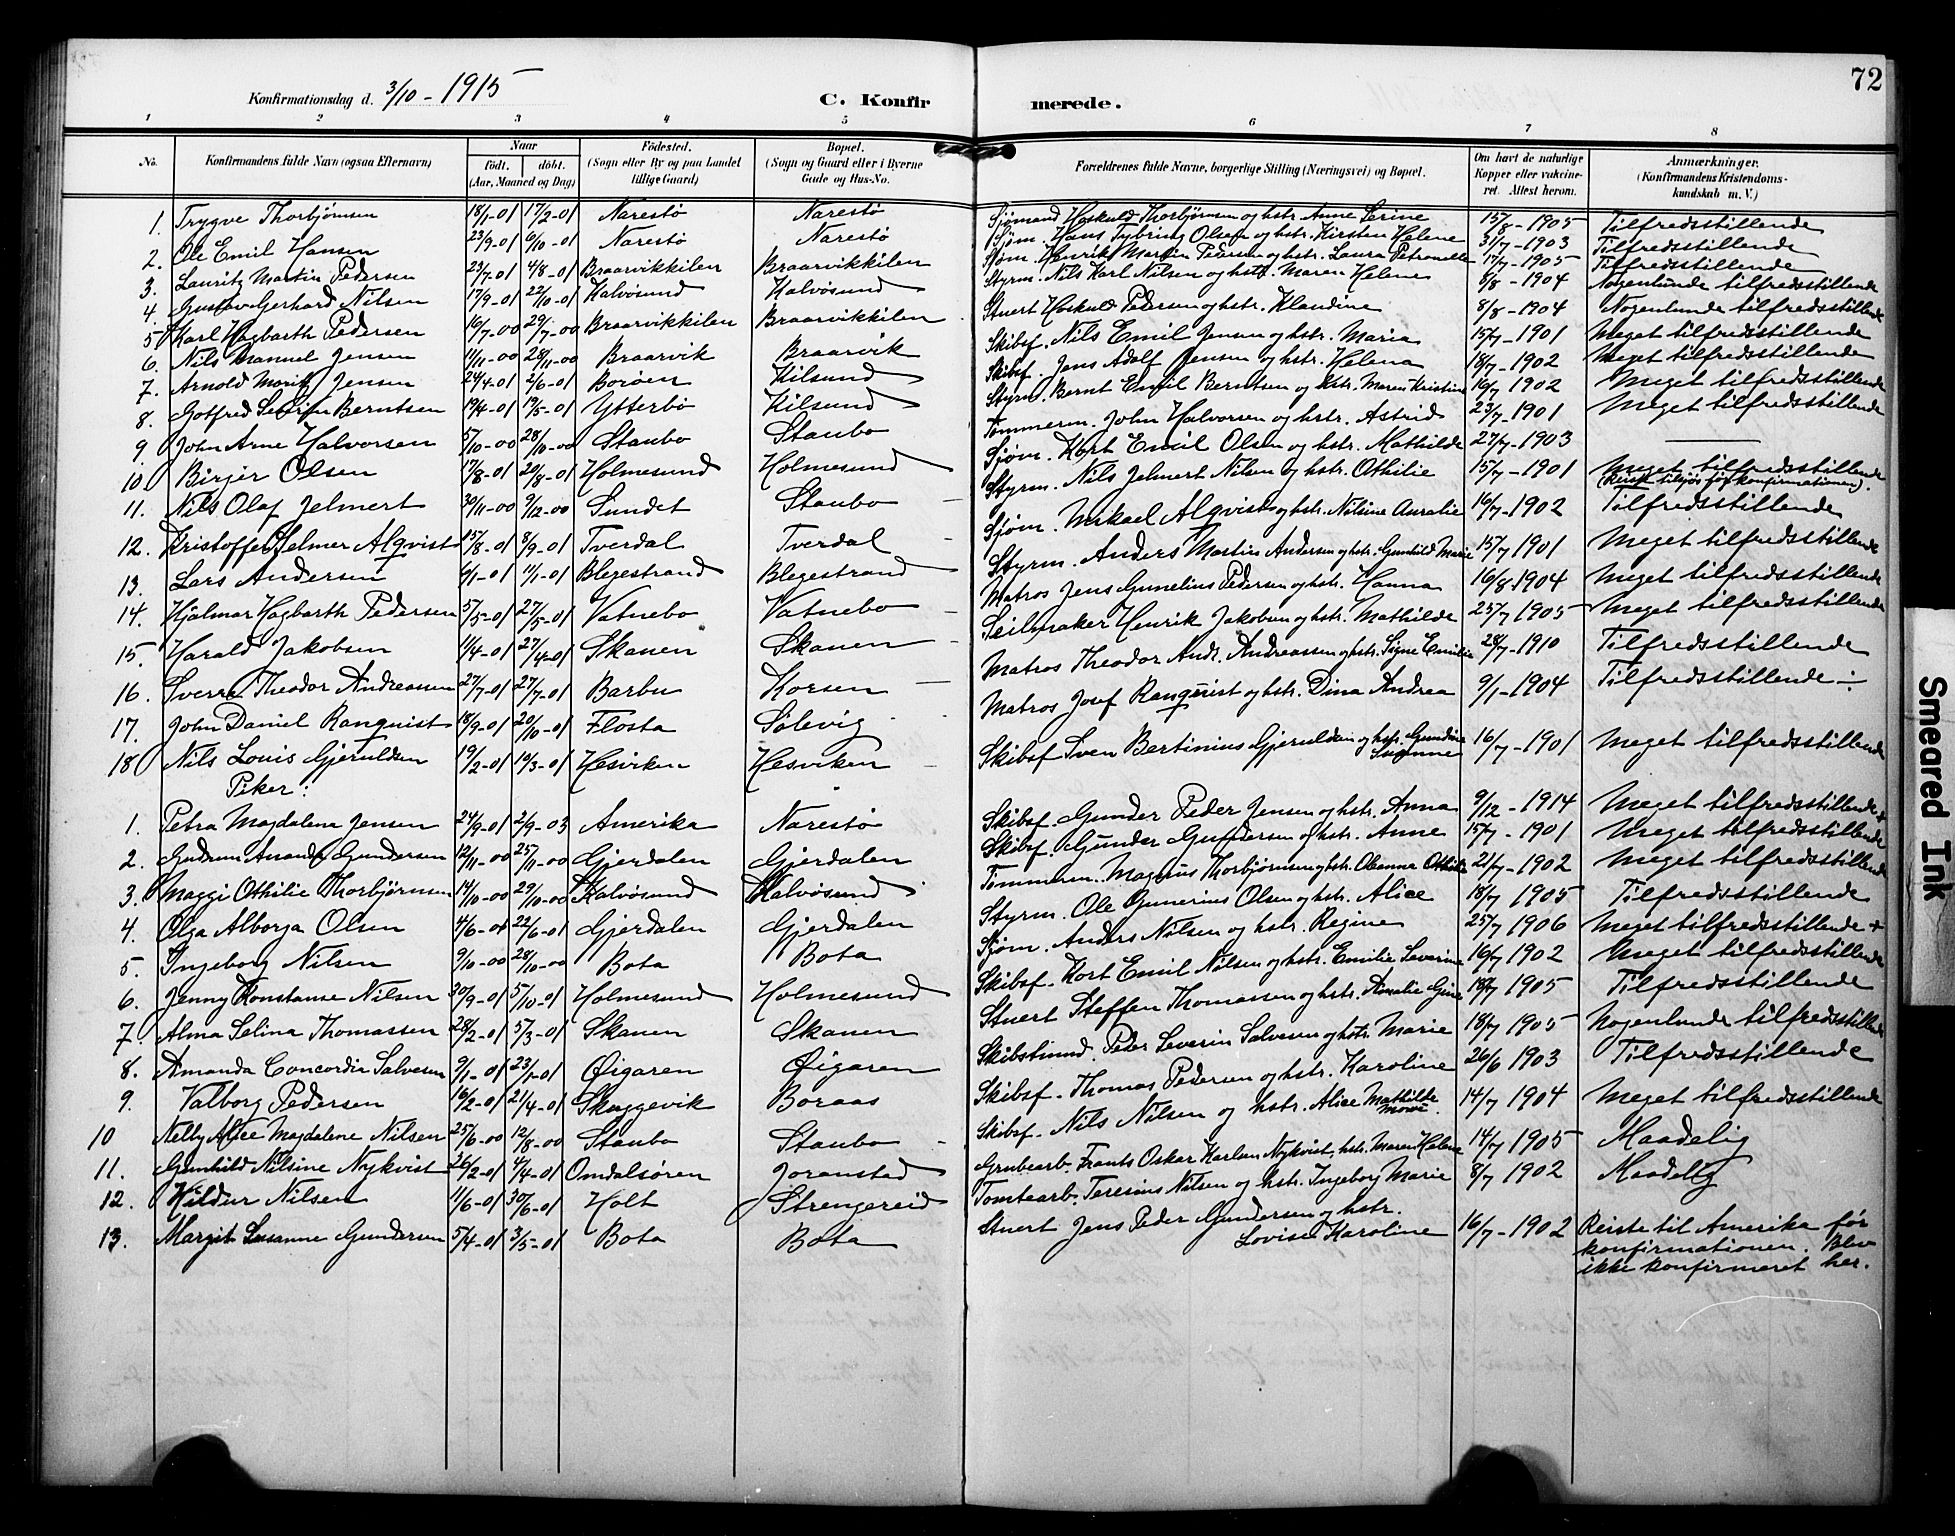 72
Konfirmationsdag d. 3/10 - 1915
C. Konfirmerede.
1 2 3 4 5 6 7 8
No. Konfirmandens fulde Navn (ogsaa Efternavn) Naar födt. döbt. (Aar, Maaned og Dag) Födested. (Sogn eller By og paa Landet tillige Gaard) Bopæl. (Sogn og Gaard eller i Byerne Gade og Hus-No. Forældrenes fulde Navne, borgerlige Stilling (Næringsvei) og Bopæl. Om havt de naturlige Kopper eller vakcineret. Attest herom. Anmærkninger. (Konfirmandens Kristendomskundskab m. V.)
1. Trygve Thorbjørnsen 18/1-01 17/2-01 Narestø Narestø Sjømand Hoskuld Thorbjørnsen og hstr. Anne Serine 15/8-1905 Tilfredsstillende
2. Ole Emil Hansen 23/9-01 6/10-01 Narestø Narestø Sjøm. Hans Tybring Olsen og hstr. Kirsten Helene 31/7-1903 Tilfredsstillende
3. Lauritz Martin Pedersen 22/7-01 4/8-01 Braarvikkilen Braarvikkilen Sjøm. Henrik Martin Petersen og hstr. Laura Petronelle 17/7-1905 Tilfredsstillende
4. Gustav Gerhard Nilsen 17/9-01 22/10-01 Kalvøsund Kalvøsund Styrm. Nils Karl Nilsen og hstr. Maren Helene 8/8-1904 Nogenlunde tilfredsstillende
5 Karl Hagbarth Pedersen 16/7-00 29/7-00 Braarvikkilen Braarvikkilen Stuert Hoskuld Pedersen og hstr. Klaudine 8/8-1904 Nogenlunde tilfredsstillende
6. Nils Manuel Jensen 11/11-00 28/11-00 Braarvik Braarvik Skibsf. Nils Emil Jensen og hstr. Maria 15/7-1901 Meget tilfredsstillende
7. Arnold Moritz Jensen 24/4-01 2/6-01 Borøen Kilsund Skibsf. Jens Adolf Jensen og hstr. Helena 18/7-1902 Meget tilfredsstillende
8. Gotfred Severin Berntsen 19/4-01 19/5-01 Ytterbø Kilsund Styrm. Bernt Emil Berntsen og hstr. Maren Kristine 16/7 1902 Meget tilfredsstillende
9. John Arne Halvorsen 5/10-00 28/10-00 Staubo Staubo Tømmerm. John Halvorsen og hstr. Astrid 23/7-1901 Meget tilfredsstillende
10. Birger Olsen 17/8-01 20/8-01 Holmesund Holmesund Sjøm. Kort Emil Olsen og hstr. Mathilde 27/7-1903
11. Nils Olaf Jelmert 30/11-00 9/12-00 Sundet Staubo Styrm. Nils Jelmert Nilsen og hstr. Othilie 15/7-1901 Meget tilfredsstillende
(Reist tilsjøs før konfirmationen).
12. Kristoffer Selmer Alqvist 15/8-01 8/9-01 Tverdal Tverdal Sjøm. Mikael Alqvist og hstr. Nilsine Auralie 16/7-1902 Tilfredsstillende
13. Lars Andersen 4/1-01 11/1-01 Blegestrand Blegestrand Styrm. Anders Martin Andersen og hstr. Gunhild Marie 15/7 1901 Meget tilfredsstillende
14. Hjalmar Hagbarth Pedersen 5/5-01 27/5-01 Vatnebo Vatnebo Matros Jens Gunelius Pedersen og hstr. Hanna 16/8-1904 Meget tilfredsstillende
15. Harald Jakobsen 11/4-01 27/4-01 Skanen Skanen Seilmaker Henrik Jakobsen og hstr. Mathilde 25/7 1905 Meget tilfredsstillende
16. Sverre Theodor Andreassen 27/7-01 27/7-01 Barbu Korsen Matros Theodor Andr. Andreassen og hstr. Signe Emilie 28/7-1910 Tilfredsstillende
17. John Daniel Ranquist 18/9-01 20/10-01 Flosta Sølevig Matros Josef Ranquist og hstr. Dina Andrea 9/1-1904 Tilfredsstillende
18 Nils Louis Gjeruldsen 19/2-01 19/3-01 Hesviken Hesviken Skibsf Sven Bertinius Gjeruldsen og hstr. Gundine Susanne 16/7-1901 Meget tilfredsstillende
Piker:
1. Petra Magdalena Jensen 24/9-01 2/9-03 Amerika Narestø Skibsf. Gunder Peder Jensen og hstr. Anna 9/12-1914 Meget tilfredsstillende +
2. Gudrun Amanda Gundersen 12/11-00 25/11-00 Gjerdalen Gjerdalen Skibsf. Gunder Gundersen og hstr. Anne 15/7-1901 Meget tilfredsstillende
3. Maggi Othilie Thorbjørnsen 14/10-00 29/10-00 Kalvøsund Kalvøsund Tømmerm. Magnus Thorbjørnsen og hstr. Oleanna Othilie 21/7-1902 Meget tilfredsstillende
4. Olga Alborga Olsen 4/6-01 22/6-01 Gjerdalen Gjerdalen Styrm. Ole Gunerius Olsen og hstr. Alice 18/7 1905 Tilfredsstillende
5. Ingeborg Nilsen 9/10-00 28/10-00 Bota Bota Sjøm. Anders Nilsen og hstr. Regine 25/7 1906 Meget tilfredsstillende +
6. Jenny Konstanse Nilsen 30/9-01 5/10-01 Holmesund Holmesund Skibsf. Kort Emil Nilsen og hstr. Emilie Severine 16/7 1902 Meget tilfredsstillende
7 Alma Selina Thomassen 28/2-01 5/3-01 Skanen Skanen Stuert Steffen Thomassen og hstr. Amalie Gine 18/7 1905 Tilfredsstillende
8. Amanda Concordia Salvesen 9/1-01 23/1-01 Øigaren Øigaren Skibstimmd. Peder Severin Salvesen og hstr. Marie 18/7 1905 Nogenlunde tilfredsstillende
9. Valborg Pedersen 16/2-01 21/4-01 Skuggevik Boraas Skibsf. Thomas Pedersen og hstr. Karoline 26/6 1903 Tilfredsstillende
10 Nelly Alice Magdalene Nilsen 25/6-00 12/8-00 Staubo Staubo Skibsf. Nils Nilsen og hstr. Alice Mathilde 14/7 1904 Meget tilfredsstillende
11. Gunhild Nilsine Nykvist 26/2-01 4/4-01 Omdalsøren Joranstad Grubearb. Frants Oskar Karlsen Nykvist, hstr. Maren Helene 14/7 1905 Maadelig
12. Hildur Nilsen 11/6-01 30/6-01 Holt Strengereid Tomtearb. Teresius Nilsen og hstr. Ingeborg Marie 8/7 1902 Maadelig
13. Margit Susanne Gundersen 5/4-01 3/5-01 Bota Bota Stuert Jens Peder Gundersen og hstr. Lovise Karoline 16/7-1902 Reiste til Amerika før
konfirmationen. Blev
ikke konfirmeret her.
Smeared Ink